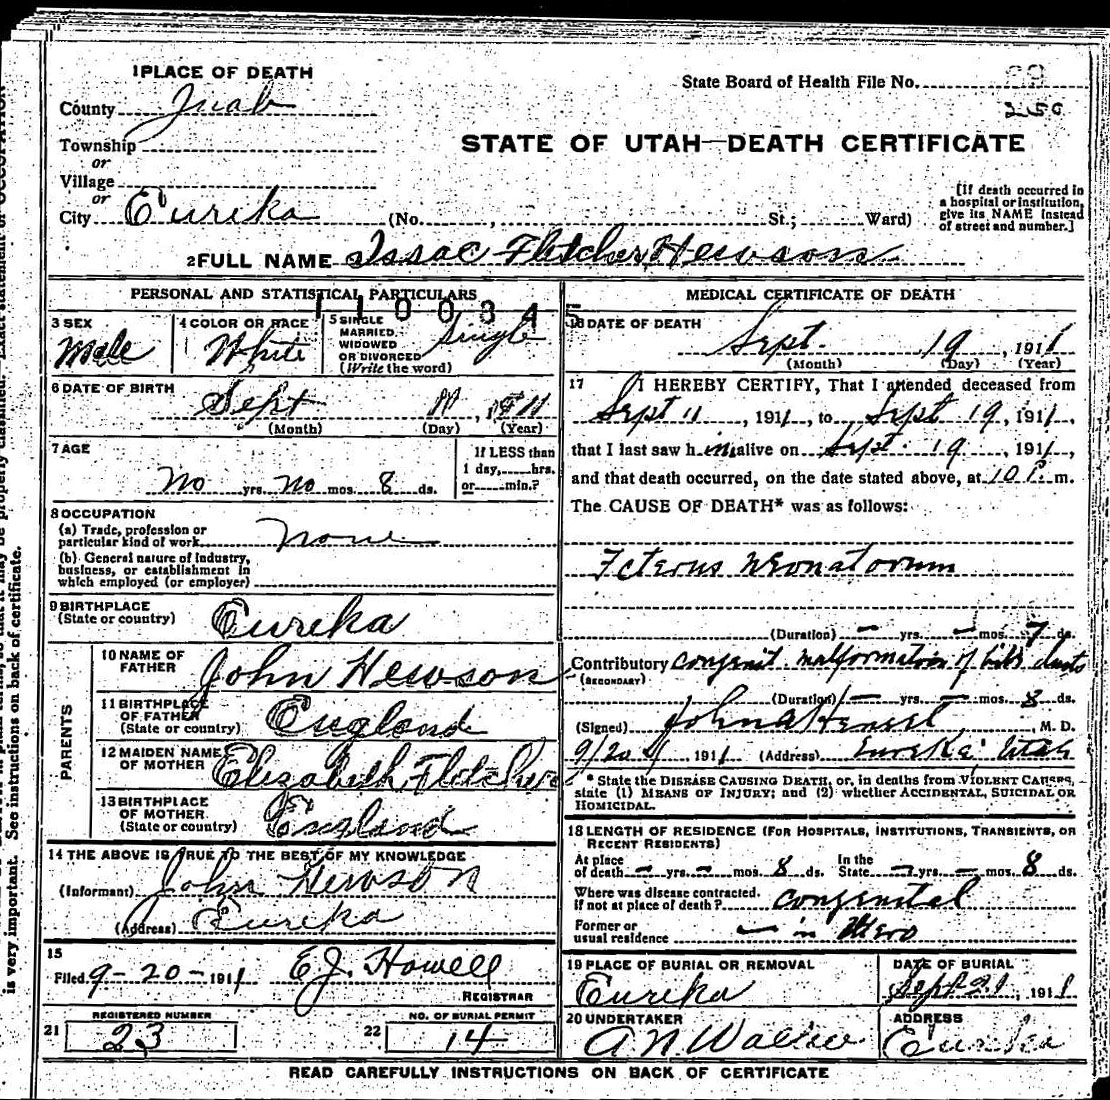 1 PLACE OF DEATH
County Juab
State Board of Health File No.
250
Township
or
Village
or
City Eureka (No. , St.; Ward)
STATE OF UTAH—DEATH CERTIFICATE
[If death occurred in
a hospital or institution,
give its NAME instead
of street and number.]
2 FULL NAME Issac Fletcher Hewson
PERSONAL AND STATISTICAL PARTICULARS
1100345
3 SEX
Male
4 COLOR OR RACE
White
5 SINGLE
MARRIED,
WIDOWED
OR DIVORCED
(Write the word)
Single
6 DATE OF BIRTH
Sept 11, 1911
(Month) (Day) (Year)
7 AGE
No yrs. no mos. 8 ds.
If LESS than
1 day, hrs.
or min.?
8 OCCUPATION
(a) Trade, profession or
particular kind of work none
(b) General nature of industry,
business, or establishment in
which employed (or employer)
9 BIRTHPLACE
(State or country)
Eureka
PARENTS
10 NAME OF
FATHER
John Hewson
11 BIRTHPLACE
OF FATHER
(State or country)
England
12 MAIDEN NAME
OF MOTHER
Elizabeth Fletcher
13 BIRTHPLACE
OF MOTHER
(State or country)
England
14 THE ABOVE IS TRUE TO THE BEST OF MY KNOWLEDGE
(Informant) John Hewson
(Address) Eureka
15
Filed 9-20-1911 E.J. Howell
REGISTRAR
REGISTERED NUMBER
21 23
NO. OF BURIAL PERMIT
22 14
MEDICAL CERTIFICATE OF DEATH
16 DATE OF DEATH
Sept. 19, 1911
(Month) (Day) (Year)
17 I HEREBY CERTIFY, That I attended deceased from
Sept 11, 1911, to Sept 19, 1911,
that I last saw h im alive on Sept. 19, 1911,
and that death occurred, on the date stated above, at 10 P. m.
The CAUSE OF DEATH* was as follows:
Icterus Neonatorum
(Duration) — yrs. — mos. 7 ds.
Contributory congenit malformation of bile ducts
(SECONDARY)
(Duration) — yrs. — mos. 8 ds.
(Signed) John M. D.
9/20 1911 (Address) Eureka Utah
* State the DISEASE CAUSING DEATH, or, in deaths from VIOLENT CAUSES,
state (1) MEANS OF INJURY; and (2) whether ACCIDENTAL, SUICIDAL OR
HOMICIDAL.
18 LENGTH OF RESIDENCE (FOR HOSPITALS, INSTITUTIONS, TRANSIENTS, OR
RECENT RESIDENTS)
At place
of death — yrs. — mos. 8 ds.
In the
State — yrs. — mos. 8 ds.
Where was disease contracted,
if not at place of death? congenital
Former or
usual residence — in Utero
19 PLACE OF BURIAL OR REMOVAL
Eureka
DATE OF BURIAL
Sept 21, 1911
20 UNDERTAKER
A N Wallace
ADDRESS
Eureka
READ CAREFULLY INSTRUCTIONS ON BACK OF CERTIFICATE
is very important. See instructions on back of certificate.